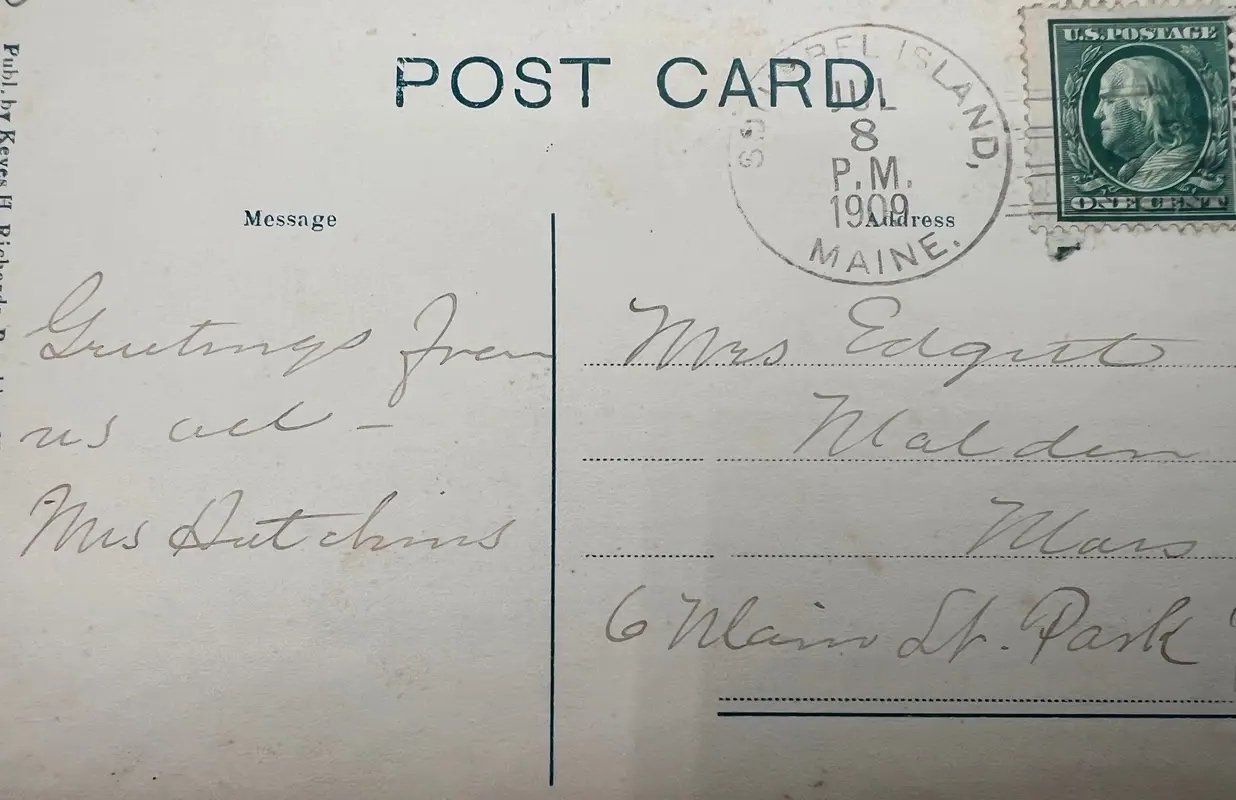 POST CARD
SQUIRREL ISLAND,
JUL
8
P.M.
1909
MAINE.
U.S. POSTAGE
ONE CENT
Message
Address
Greetings from
us all –
Mrs Hutchins
Mrs Edgett
Malden
Mass
6 Main St. Park
Publ. by Keyes H. Richards